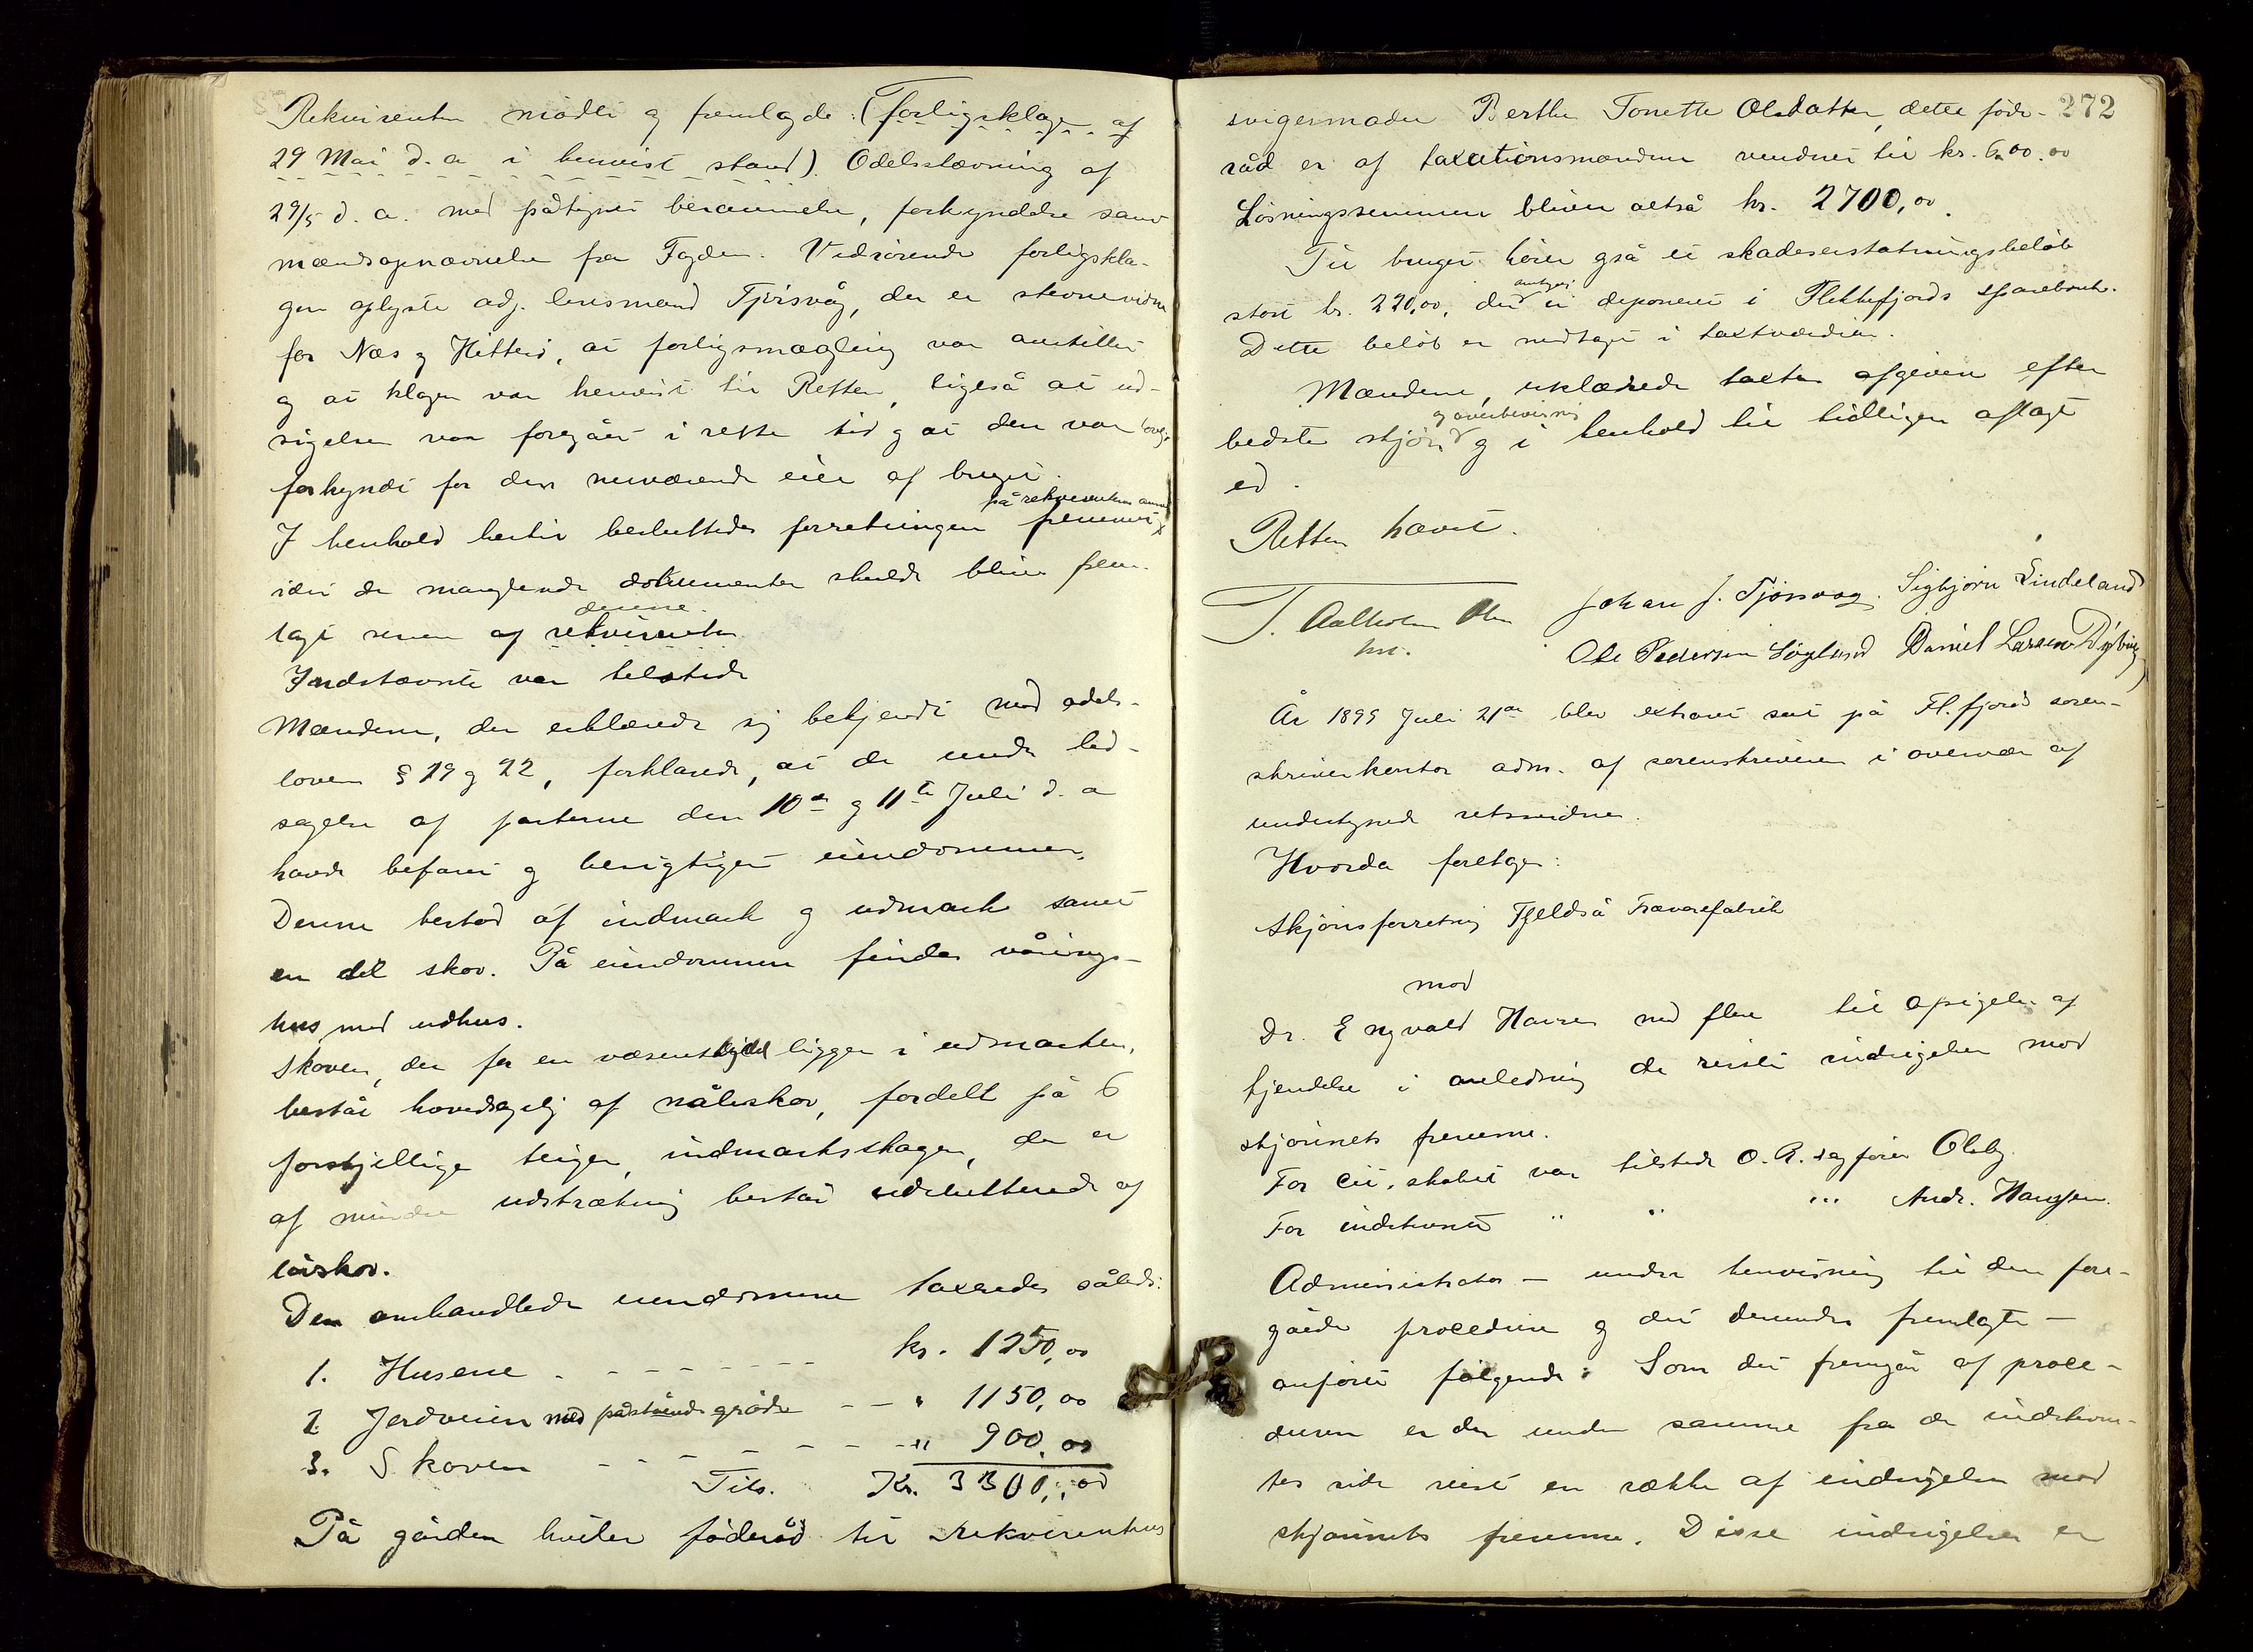 Rekvirenten mødte og fremlagde: (forligsklage af
29 Mai d. a. i henvist stand). Odelsstævning af
29/5 d. a. med påtegnet berammelse, forkyndelse samt
mændsopnævnelse fra Fogden. Vedrørende forligskla-
gen oplyste adj. lensmand Tjørsvåg, der er stevnevidne
for Næs og Hitterø, at forligsmægling var anstillet
og at klagen var henvist til Retten, ligeså at ud-
sigelsen var foregået i rette tid og at den var lovlig
forkyndt for den nuværende eier af bruget.
på rekvirentens
I henhold hertil besluttedes forretningen fremmet
idet de manglende dokumenter skulde blive frem-
denne.
lagt senere af rekvirenten.
Indstævnte var tilstede
Mændene, der erklærede sig bekjendt med odels-
loven § 19 og 22, forklarede, at de under led-
sagelse af parterne den 10de og 11te Juli d. a
havde befaret og besigtiget eiendommen.
Denne bestod af indmark og udmark samt
en del skov. På eiendommen findes vånings-
hus med udhus.
Skoven, der for en væsentlig del ligger i udmarken,
består hovedsagelig af nåleskov, fordelt på 6
forskjellige teiger, indmarksskogen, der er
af mindre udstrækning består udelukkende af
løvskov.
Den omhandlede eiendomme taxeredes således:
1. Husene - - - - - - - kr. 1250,00
2. Jordveien med påstående grøde - - " 1150,00
3. Skoven - - - - - - " 900,00
Tils. Kr. 3300,00
På gården hviler føderåd til rekvirentens
272
svigermoder Berthe Tonette Olsdatter, dette føde-
råd er af taxationsmændene vurderet til kr. 600.00
Løsningssummen bliver altså kr. 2700,00.
Til bruget hører også et skadeserstatningsbeløb
stort kr. 220,00, der er deponeret i Flekkefjords sparebank.
Dette beløb er medtaget i taxtværdien.
Mændene erklærede taxten afgiven efter
og overbevisning
bedste skjøn og i henhold til tidligere aflagt
ed.
Retten hævet.
T. Aalholm
Johan J. Tjørsvaag. Sigbjørn Sindeland
Ole Pedersen Løgland Daniel Larsen
År 1899 Juli 21de blev extraret sat på Fl.fjord soren-
skriverkontor adm. af sorenskriveren i overvær af
undertegnede retsvidner.
Hvorda foretoges:
Skjønsforretning Fjeldså Trævarefabrik
mod
Dr. Engvald Hansen med flere til afsigelse af
kjendelse i anledning de reiste indsigelser mod
skjønnets fremme.
For selskabet var tilstede O.R.sagfører Olsby.
For indstevnte " " "' Andr. Hanssen.
Administrator – under henvisning til den fore-
gåede procedure og det derunder fremlagte –
anførte følgende: Som det fremgår af proce-
duren er der under samme fra de indstevn-
tes side reist en række af indsigelser mod
skjønnets fremme. Disse indsigelser er